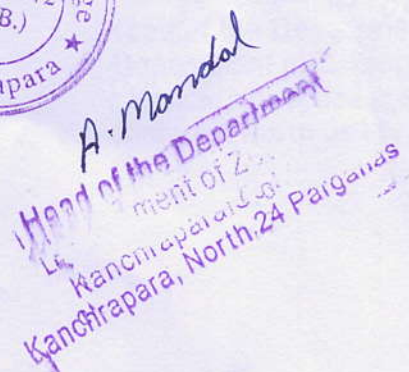 B.)
para ★
A. Mandal
Head of the Department
ment of
Kanchrapara
Kanchrapara, North 24 Parganas